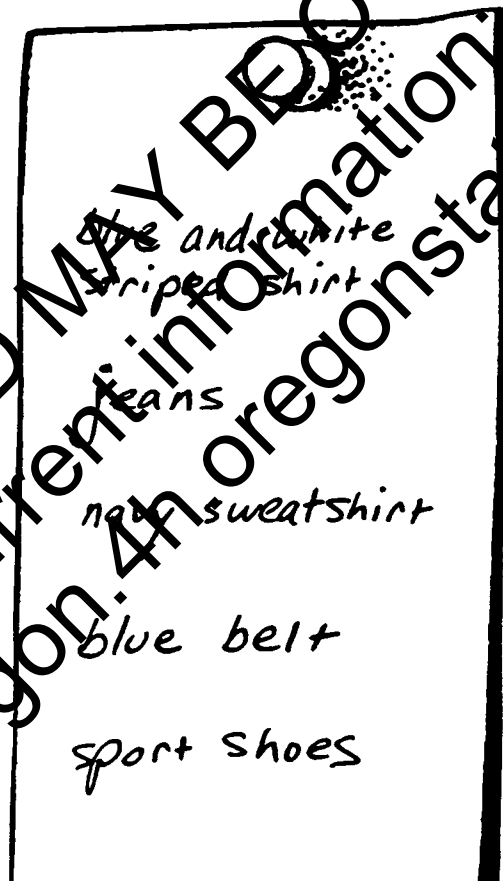 blue and white
striped shirt
jeans
navy sweatshirt
blue belt
sport shoes
MAY BE O
rrent information.
gon.4h oregonsta